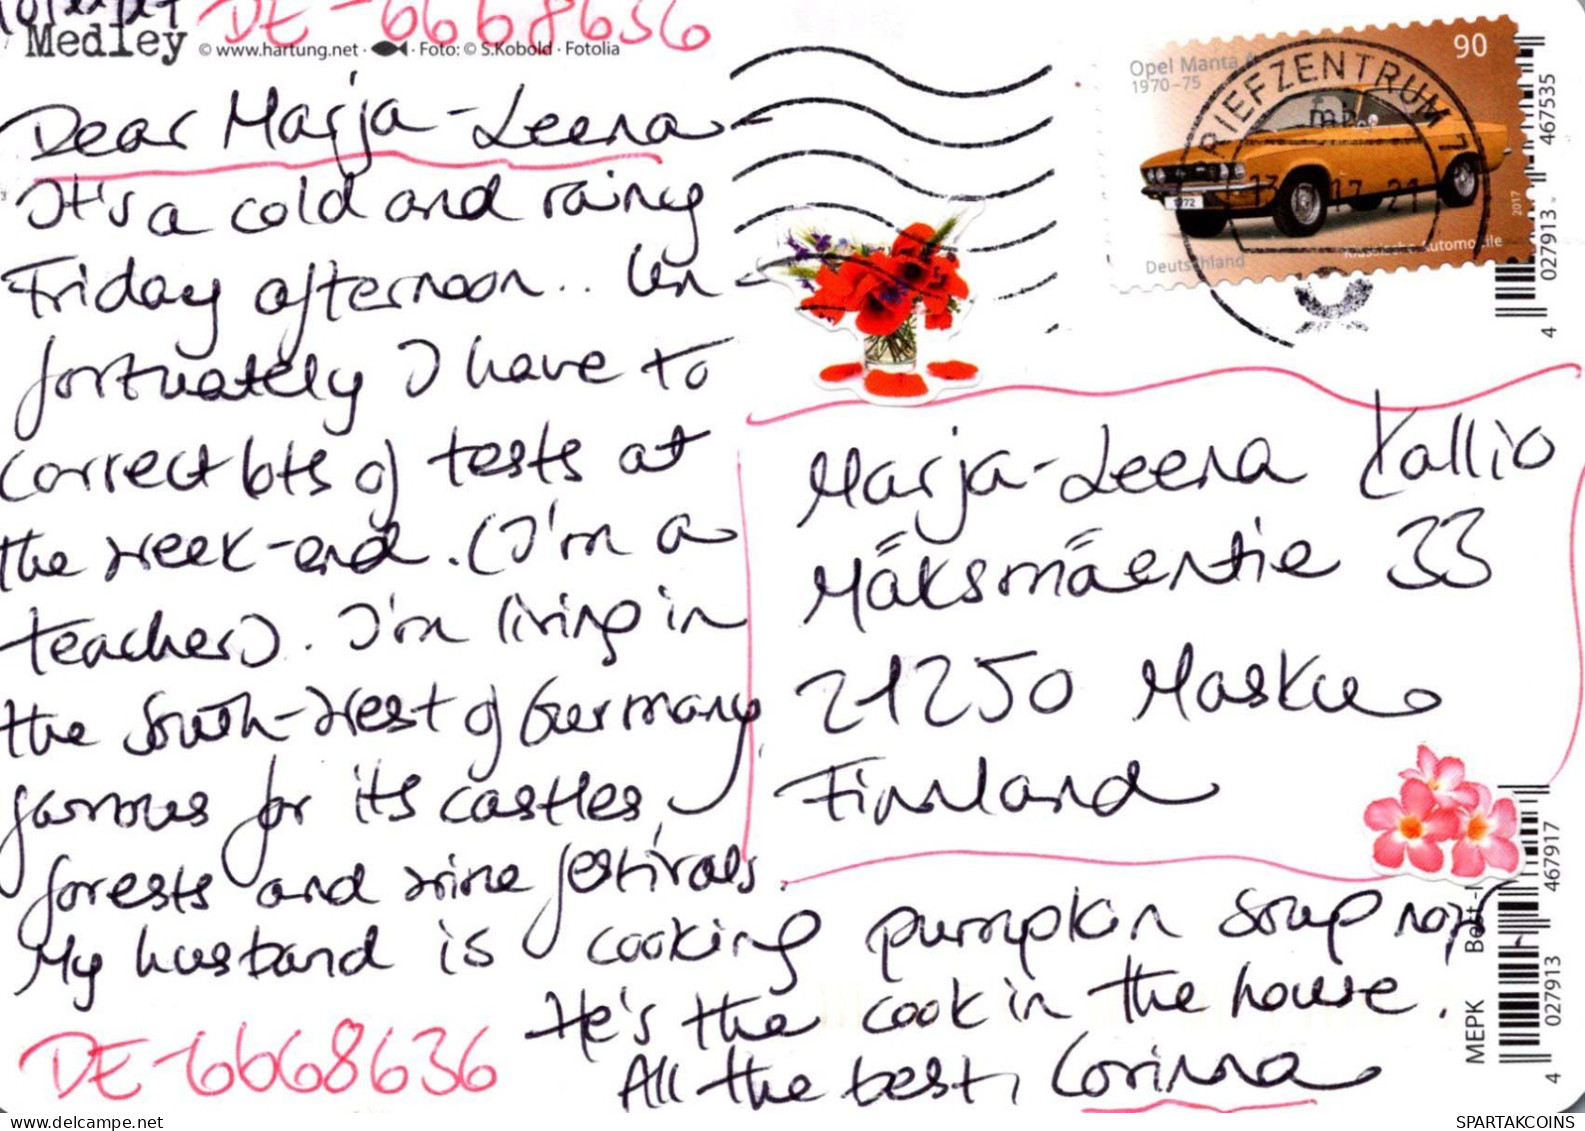 Medley © www.hartung.net · Foto: © S.Kobold · Fotolia
DE-6668636
Dear Marja-Leena
It's a cold and rainy
Friday afternoon.. Un
fortuately I have to
correct lots of tests at
the week-end. (I'm a
teacher). I'm living in
the South-West of Germany
famous for its castles,
forests and wine festivals.
My husband is cooking pumpkin soup now
He's the cook in the house.
All the best, Corinna
DE-6668636
Opel Manta A
1970-75
90
BRIEFZENTRUM
1972
2017
Klassische Automobile
Deutschland
Marja-Leena Kallio
Mäksmäentie 33
21250 Masku
Finnland
4 027913 467535
MEPK Best.-
4 027913 467917
SPARTAKCOINS